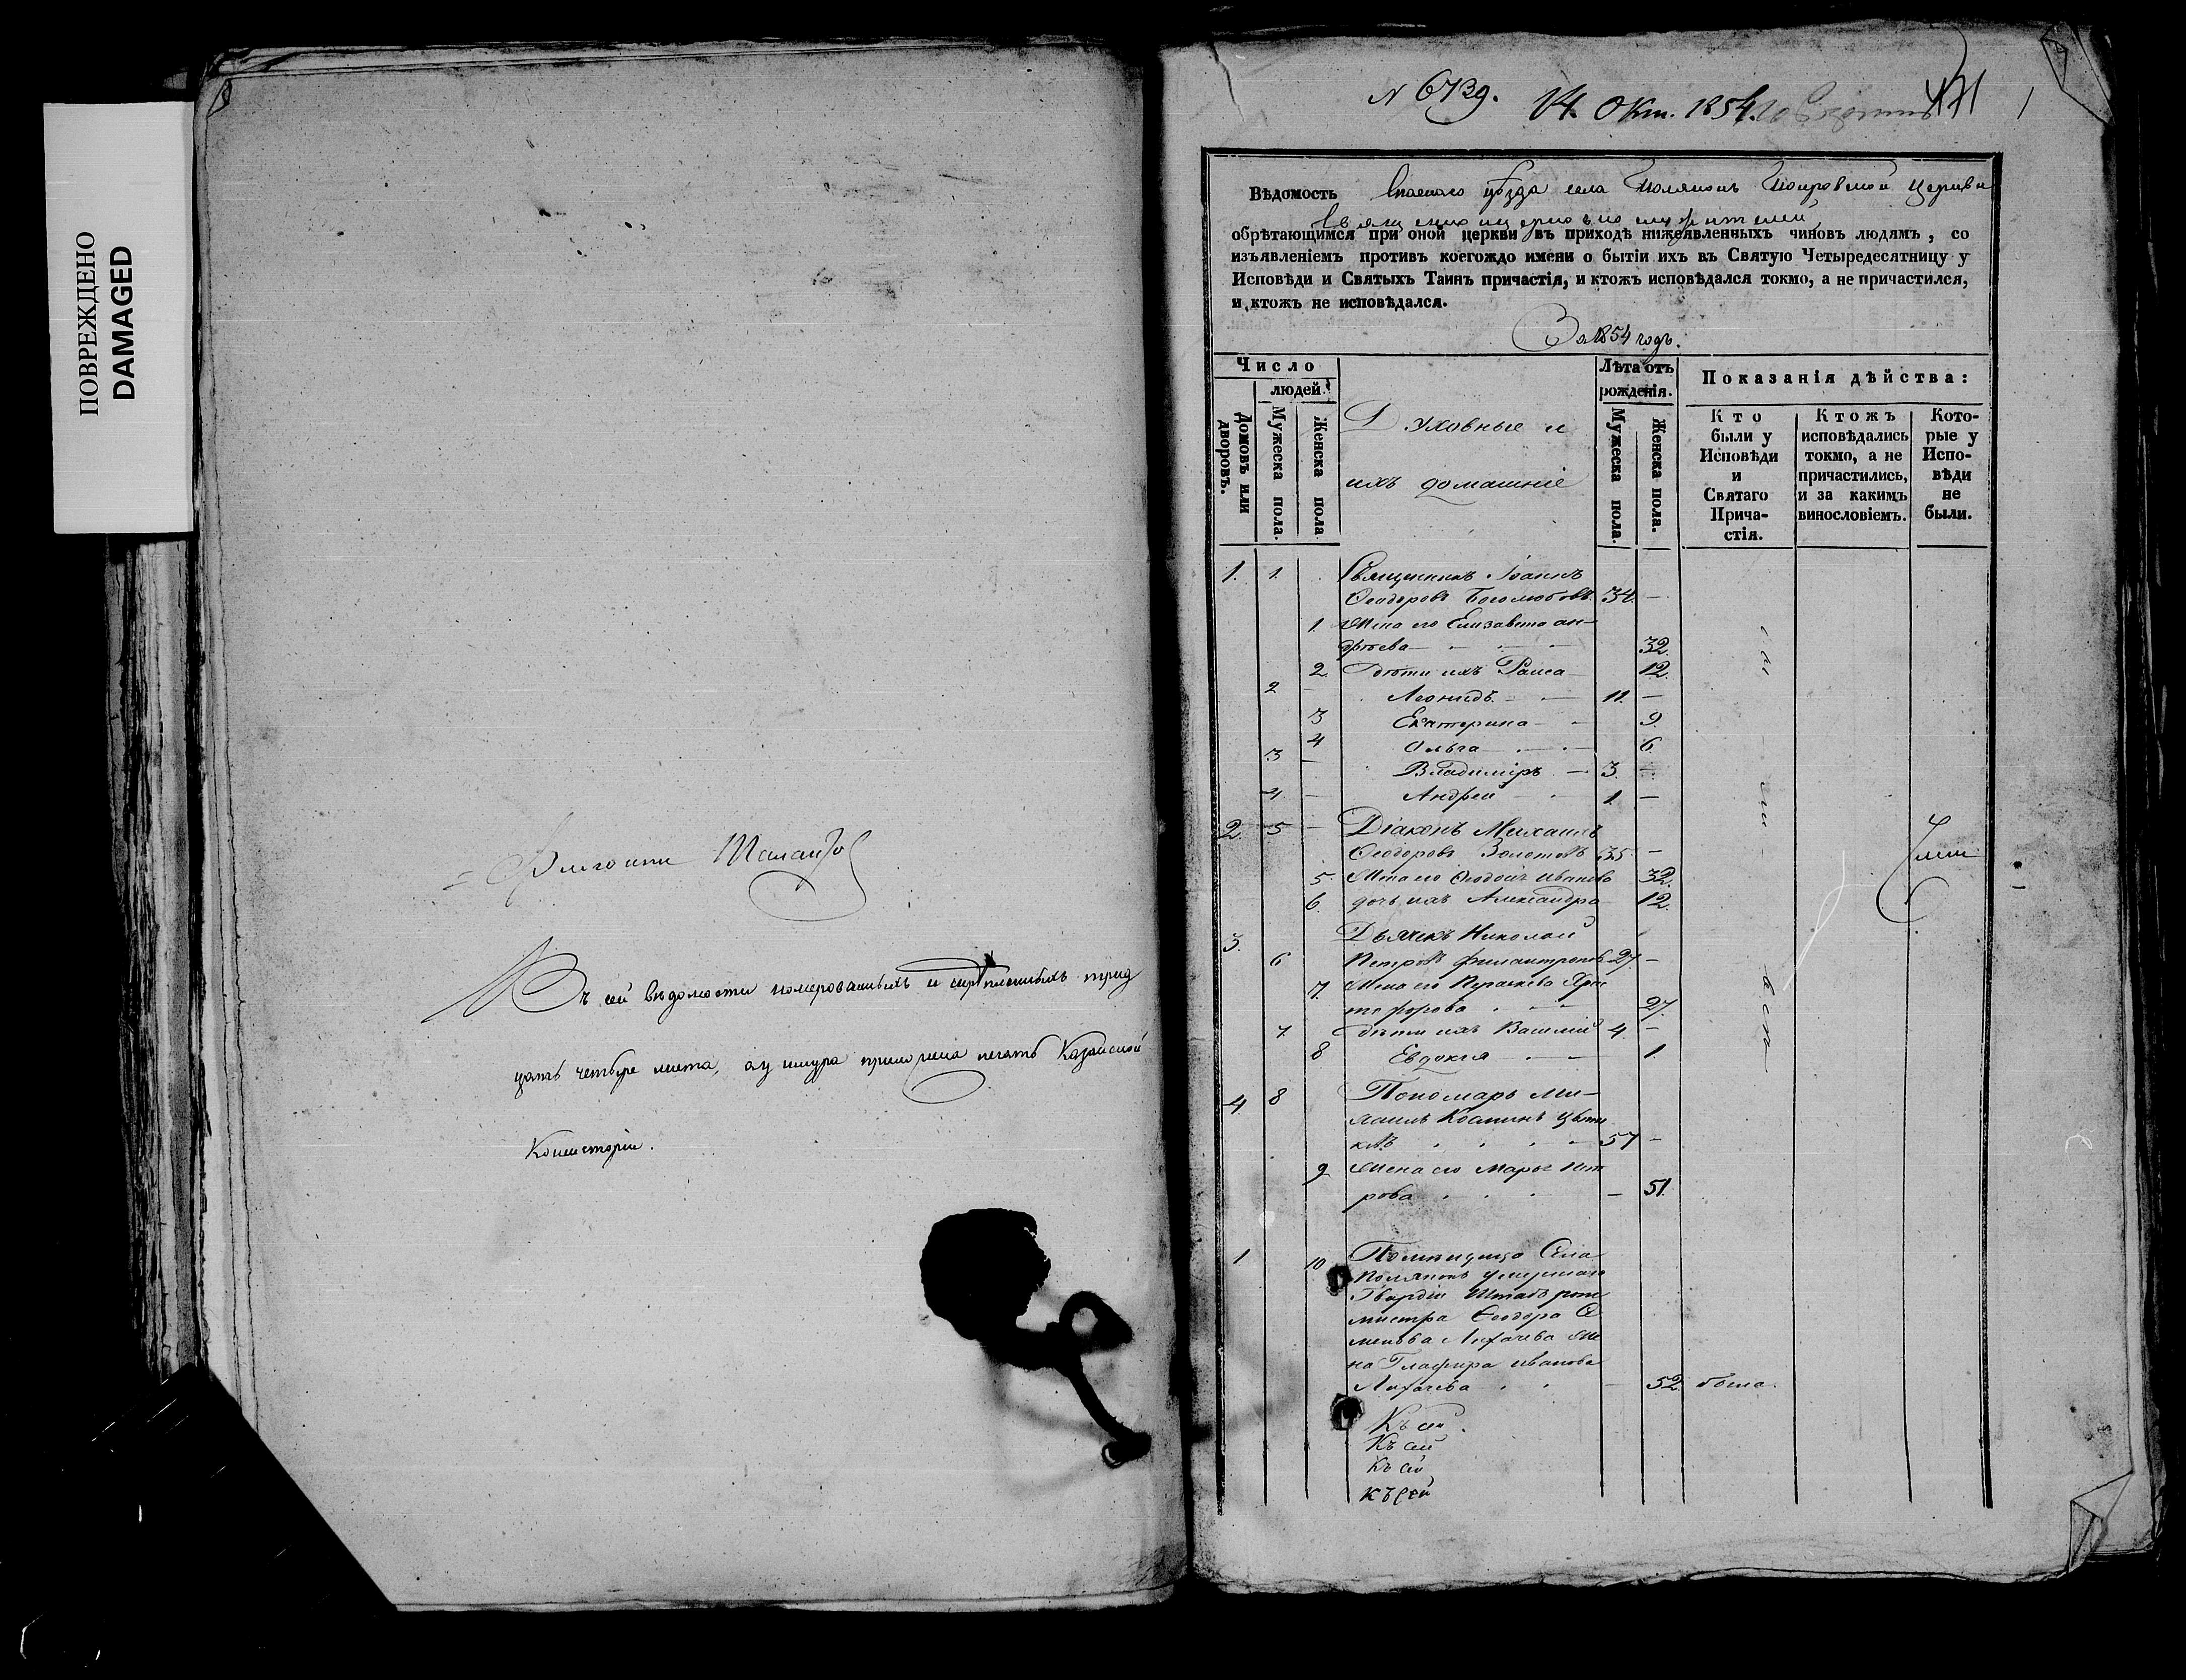 ПОВРЕЖДЕНО
DAMAGED
Въ сей вѣдомости номерованныхъ и скрѣпленныхъ трид
цать четыре листа, а у шнура приложена печать Казанской
Консисторіи.
N 6739. 14 Окт. 1854.
Вѣдомость Спасского уѣзда села Полянокъ Покровской церкви
священноцерковнослужителей
обрѣтающимся при оной церкви въ приходѣ нижеявленныхъ чиновъ людямъ, со
изъявленіемъ противъ коегождо имени о бытіи ихъ въ Святую Четыредесятницу у
Исповѣди и Святыхъ Таинъ причастія, и ктожъ исповѣдался токмо, а не причастился,
и ктожъ не исповѣдался.
За 1854 годъ.
Число
людей.
Домовъ или дворовъ.
Мужеска пола.
Женска пола
Духовные и
ихъ домашніе
Лѣта отъ
рожденія.
Мужеска пола.
Женска пола.
Показанія дѣйства:
Кто
были у
Исповѣди
и
Святаго
Прича-
стія.
Ктожъ
исповѣдались
токмо, а не
причастились,
и за какимъ
винословіемъ.
Кото-
рые у
Испо-
вѣди
не
были.
1. 1. Священникъ Іоаннъ
Ѳеодоровъ Боголюбовъ. 34. —
1. Жена его Елизавета Ан-
дреева — 32.
2. Дѣти ихъ Раиса 12.
2 — Леонидъ — 11. —
3 Екатерина — 9.
4 Ольга — 6.
3 — Владиміръ — 3. —
4. — Андрей — 1. —
2. 5 — Діаконъ Михаилъ
Ѳеодоровъ Золотовъ 35. —
5. Жена его Иванова 32.
6. дочь ихъ Александра 12.
3. Дьячекъ Николай
6 Петровъ Филантроповъ 27. —
7. Жена его Хри
стофорова 27.
7 Дѣти ихъ Василій 4. —
8 Евдокія — 1.
4. 8 Пономарь Ми-
хаилъ Косминъ Цвѣт
ковъ 57 —
9 Жена его Марья Пет
рова — 51.
1 10 Помѣщица Села
Полянокъ умершаго
Гвардіи Штабъ рот
мистра Ѳеодора Се
менова Лихачева же
на Глафира Иванова
Лихачева — 52. была.
Къ сей
Къ сей
Къ сей
Къ сей